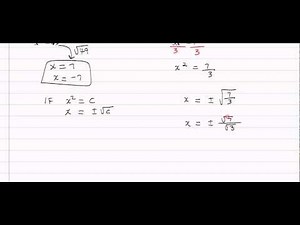 √49
x = 7
x = -7
IF x² = C
x = ±√C
3 3
x² = 7/3
x = ± √(7/3)
x = ± √7/√3